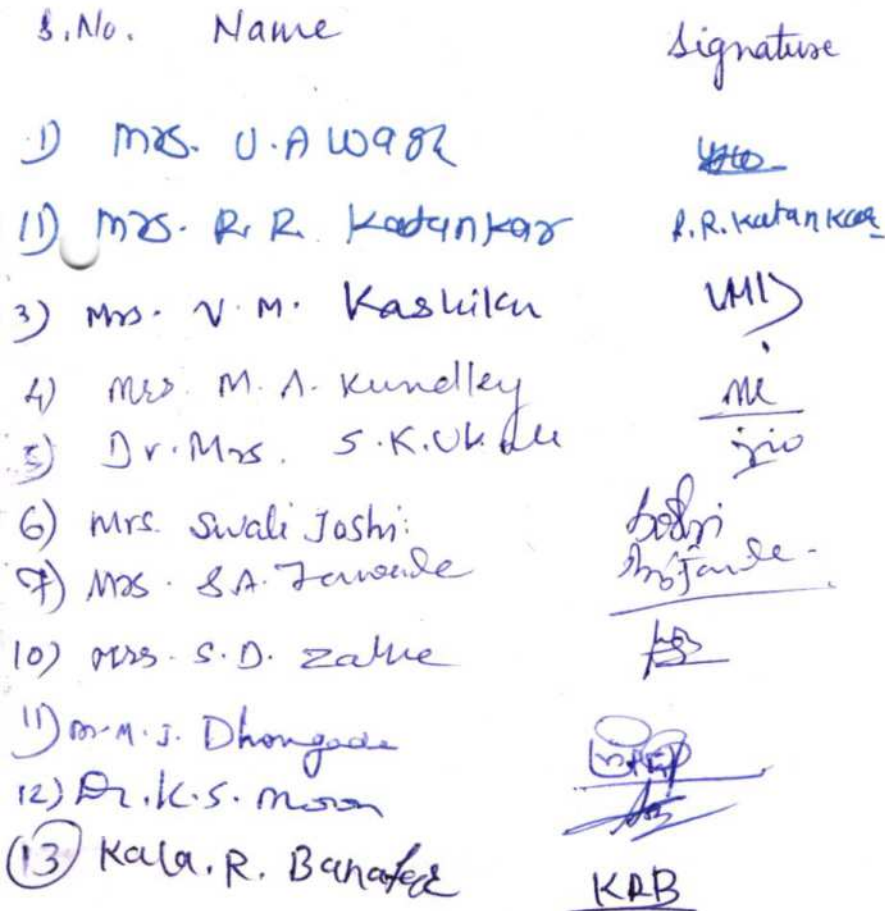 S.No. Name Signature
1) Mrs. U.A Wagh
11) Mrs. R. R. Katankar R.R. Katankar
3) Mrs. V. M. Kashikar
4) Mrs. M. A. Kundley MK
5) Dr. Mrs. S.K.
6) Mrs. Swali Joshi Joshi
7) Mrs. S.A.
10) Mrs. S.D. Zalke
11) M.J. Dhongade
12) Dr. K.S. Moon
13 Kala. R. KRB